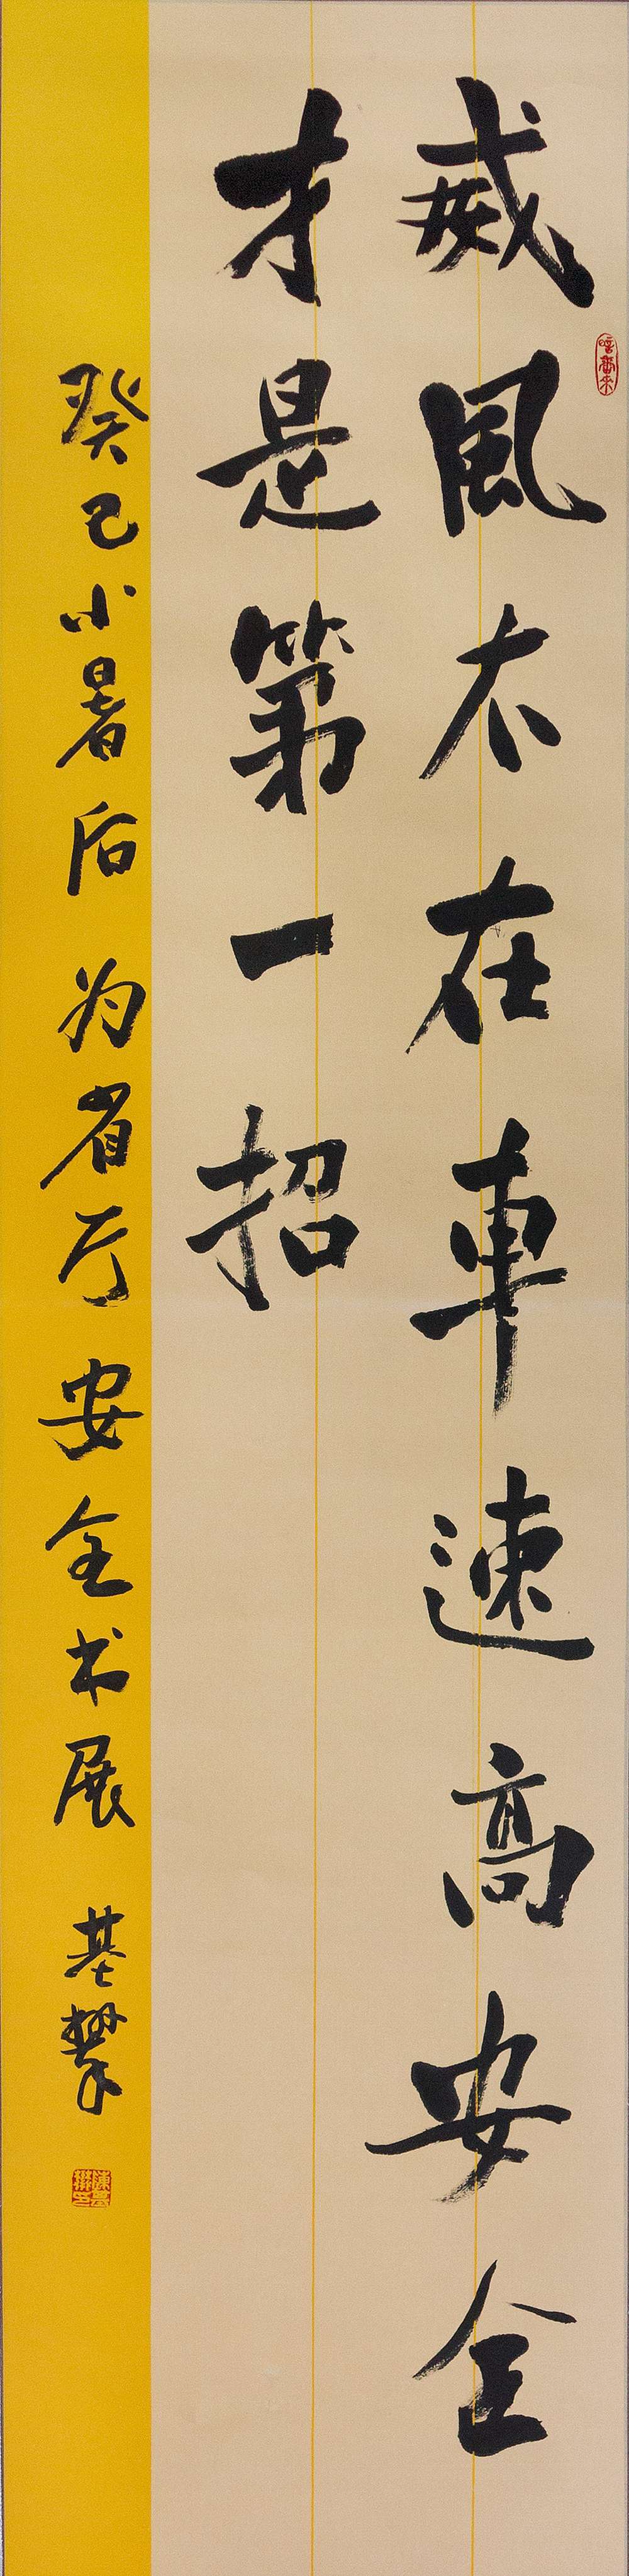 威風不在車速高安全
才是第一招
癸巳小暑后为省厅安全书展 基攀